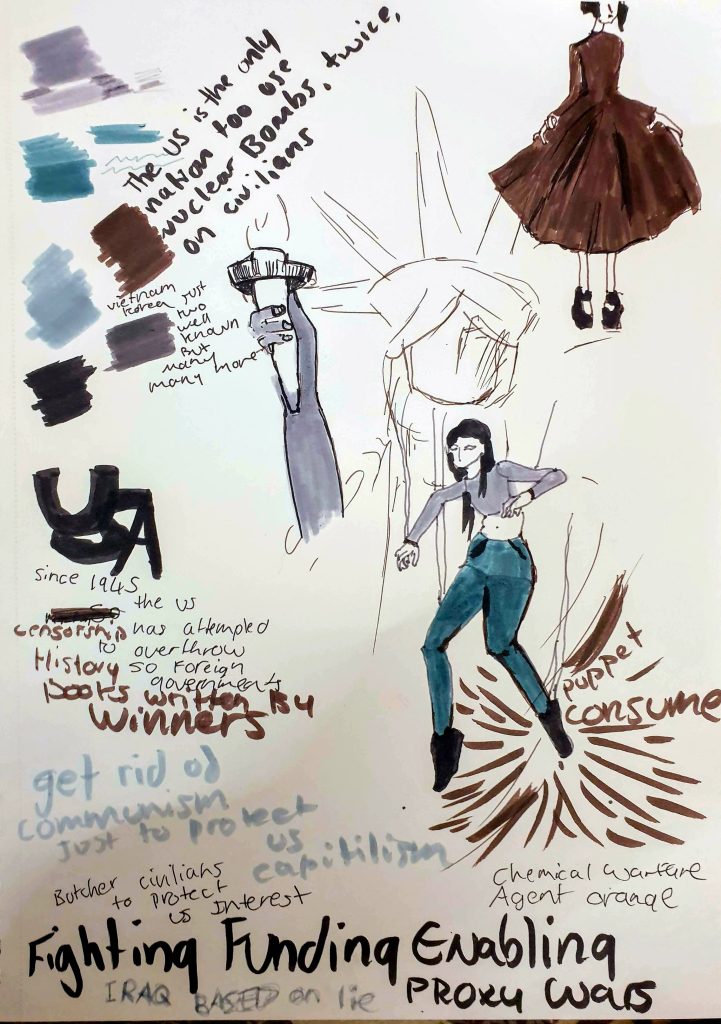 The US is the only
nation too use
nuclear Bombs, twice,
on civilians
vietnam
Korea just
two
well
known
But
many
many more
USA
since 1945
the us
censorship has attempted
to overthrow
History so Foreign
governments
Books written By
Winners
get rid od
communism
just to protect
us
capitilism
Butcher civilians
to protect
us Interest
puppet
consume
Chemical warfare
Agent orange
Fighting Funding Enabling
IRAQ BASED on lie PROXY Wars